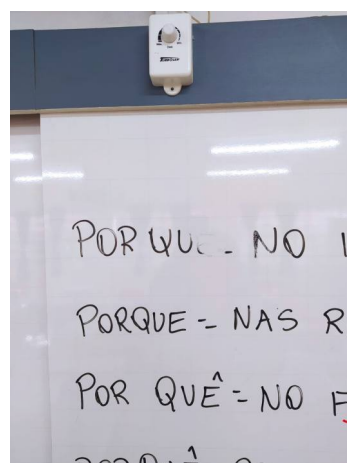 POR QUE - NO
PORQUE = NAS R
POR QUÊ = NO F